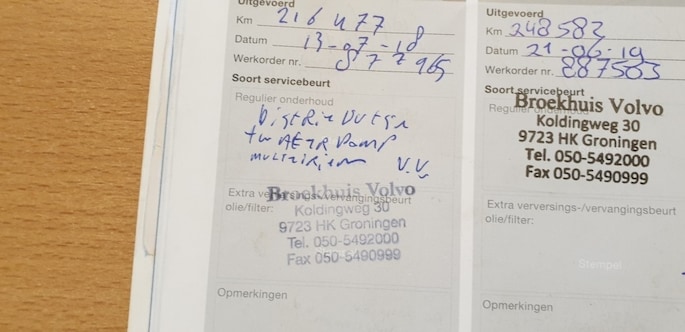 Uitgevoerd
Km 216477
Datum 13-07-18
Werkorder nr.
Soort servicebeurt
Regulier onderhoud
Distrie
Pomp
V.V.
Extra
Broekhuis Volvo
olie/filter:
Koldingweg 30
9723 HK Groningen
Tel. 050-5492000
Fax 050-5490999
Opmerkingen
Uitgevoerd
Km 248582
Datum 21-06-19
Werkorder nr. 887503
Soort servicebeurt
Broekhuis Volvo
Koldingweg 30
9723 HK Groningen
Tel. 050-5492000
Fax 050-5490999
Extra verversings-/vervangingsbeurt
olie/filter:
Stempel
Opmerkingen